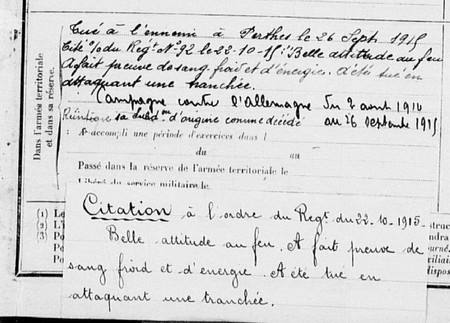 Tué à l'ennemi à Perthes le 26 Sept. 1915
Cité % du Régt N° 92 le 22-10-15 : "Belle attitude au feu
A fait preuve de sang froid et d'énergie. A été tué en
attaquant une tranchée.
Campagne contre l'Allemagne du 2 août 1914
au 26 septembre 1915
Dans l'armée territoriale
et dans sa réserve.
A accompli une période d'exercices dans l
du au
Passé dans la réserve de l'armée territoriale le
Libéré du service militaire.
Citation à l'ordre du Régt du 22-10-1915-
Belle attitude au feu. A fait preuve de
sang froid et d'énergie. A été tué en
attaquant une tranchée.
(1) Le
(2) Po
(3) Po